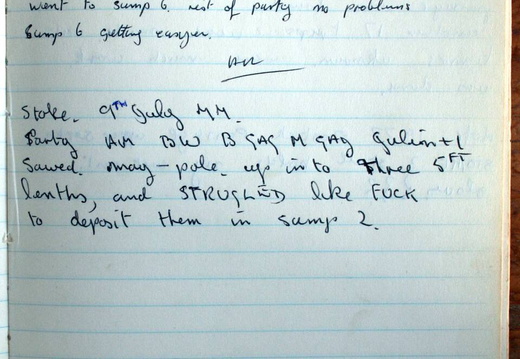 went to sump 6. rest of party no problems
Sump 6 getting easyier.
Stoke. 9TH July MM.
Party AM BW B GAG M GAG Julian + 1
Sawed. may-pole. up in to three 5FT
lenths, and STRUGLED like FUCK
to deposit them in sump 2.